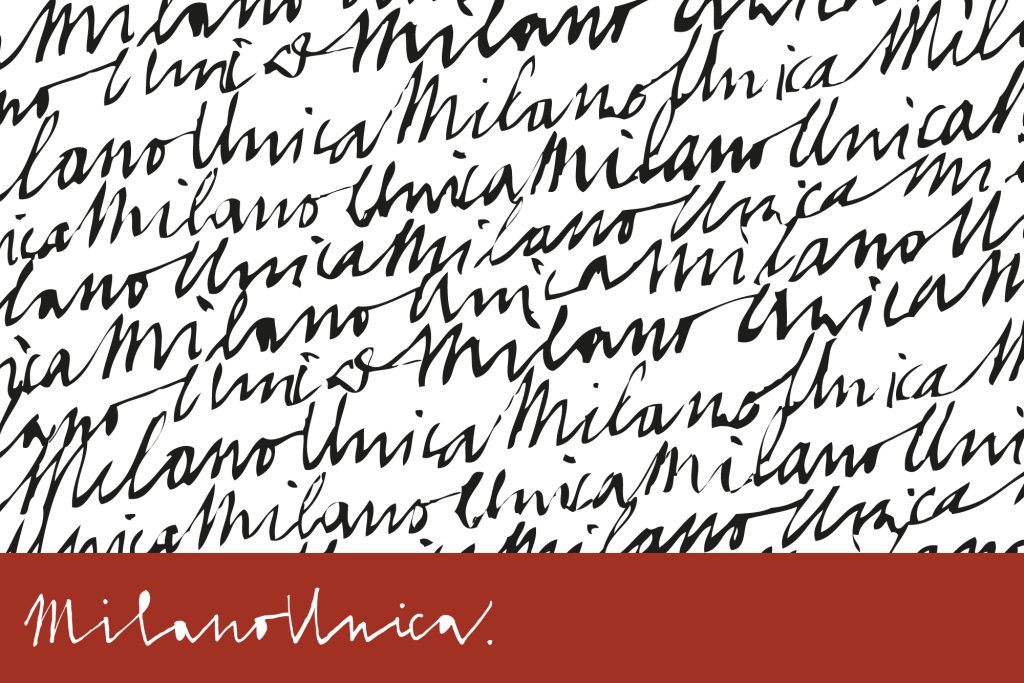 Milano
no Unica Milano Unica
lano Unica Milano Unica Mil
ica Milano Unica Milano Unica M
lano Unica Milano Unica Mi
ica Milano Unica Milano U
ano Unica Milano Unica M
Milano Unica Milano Unica M
Unica Milano Unica Milano Uni
Milano Unica
MilanoUnica.